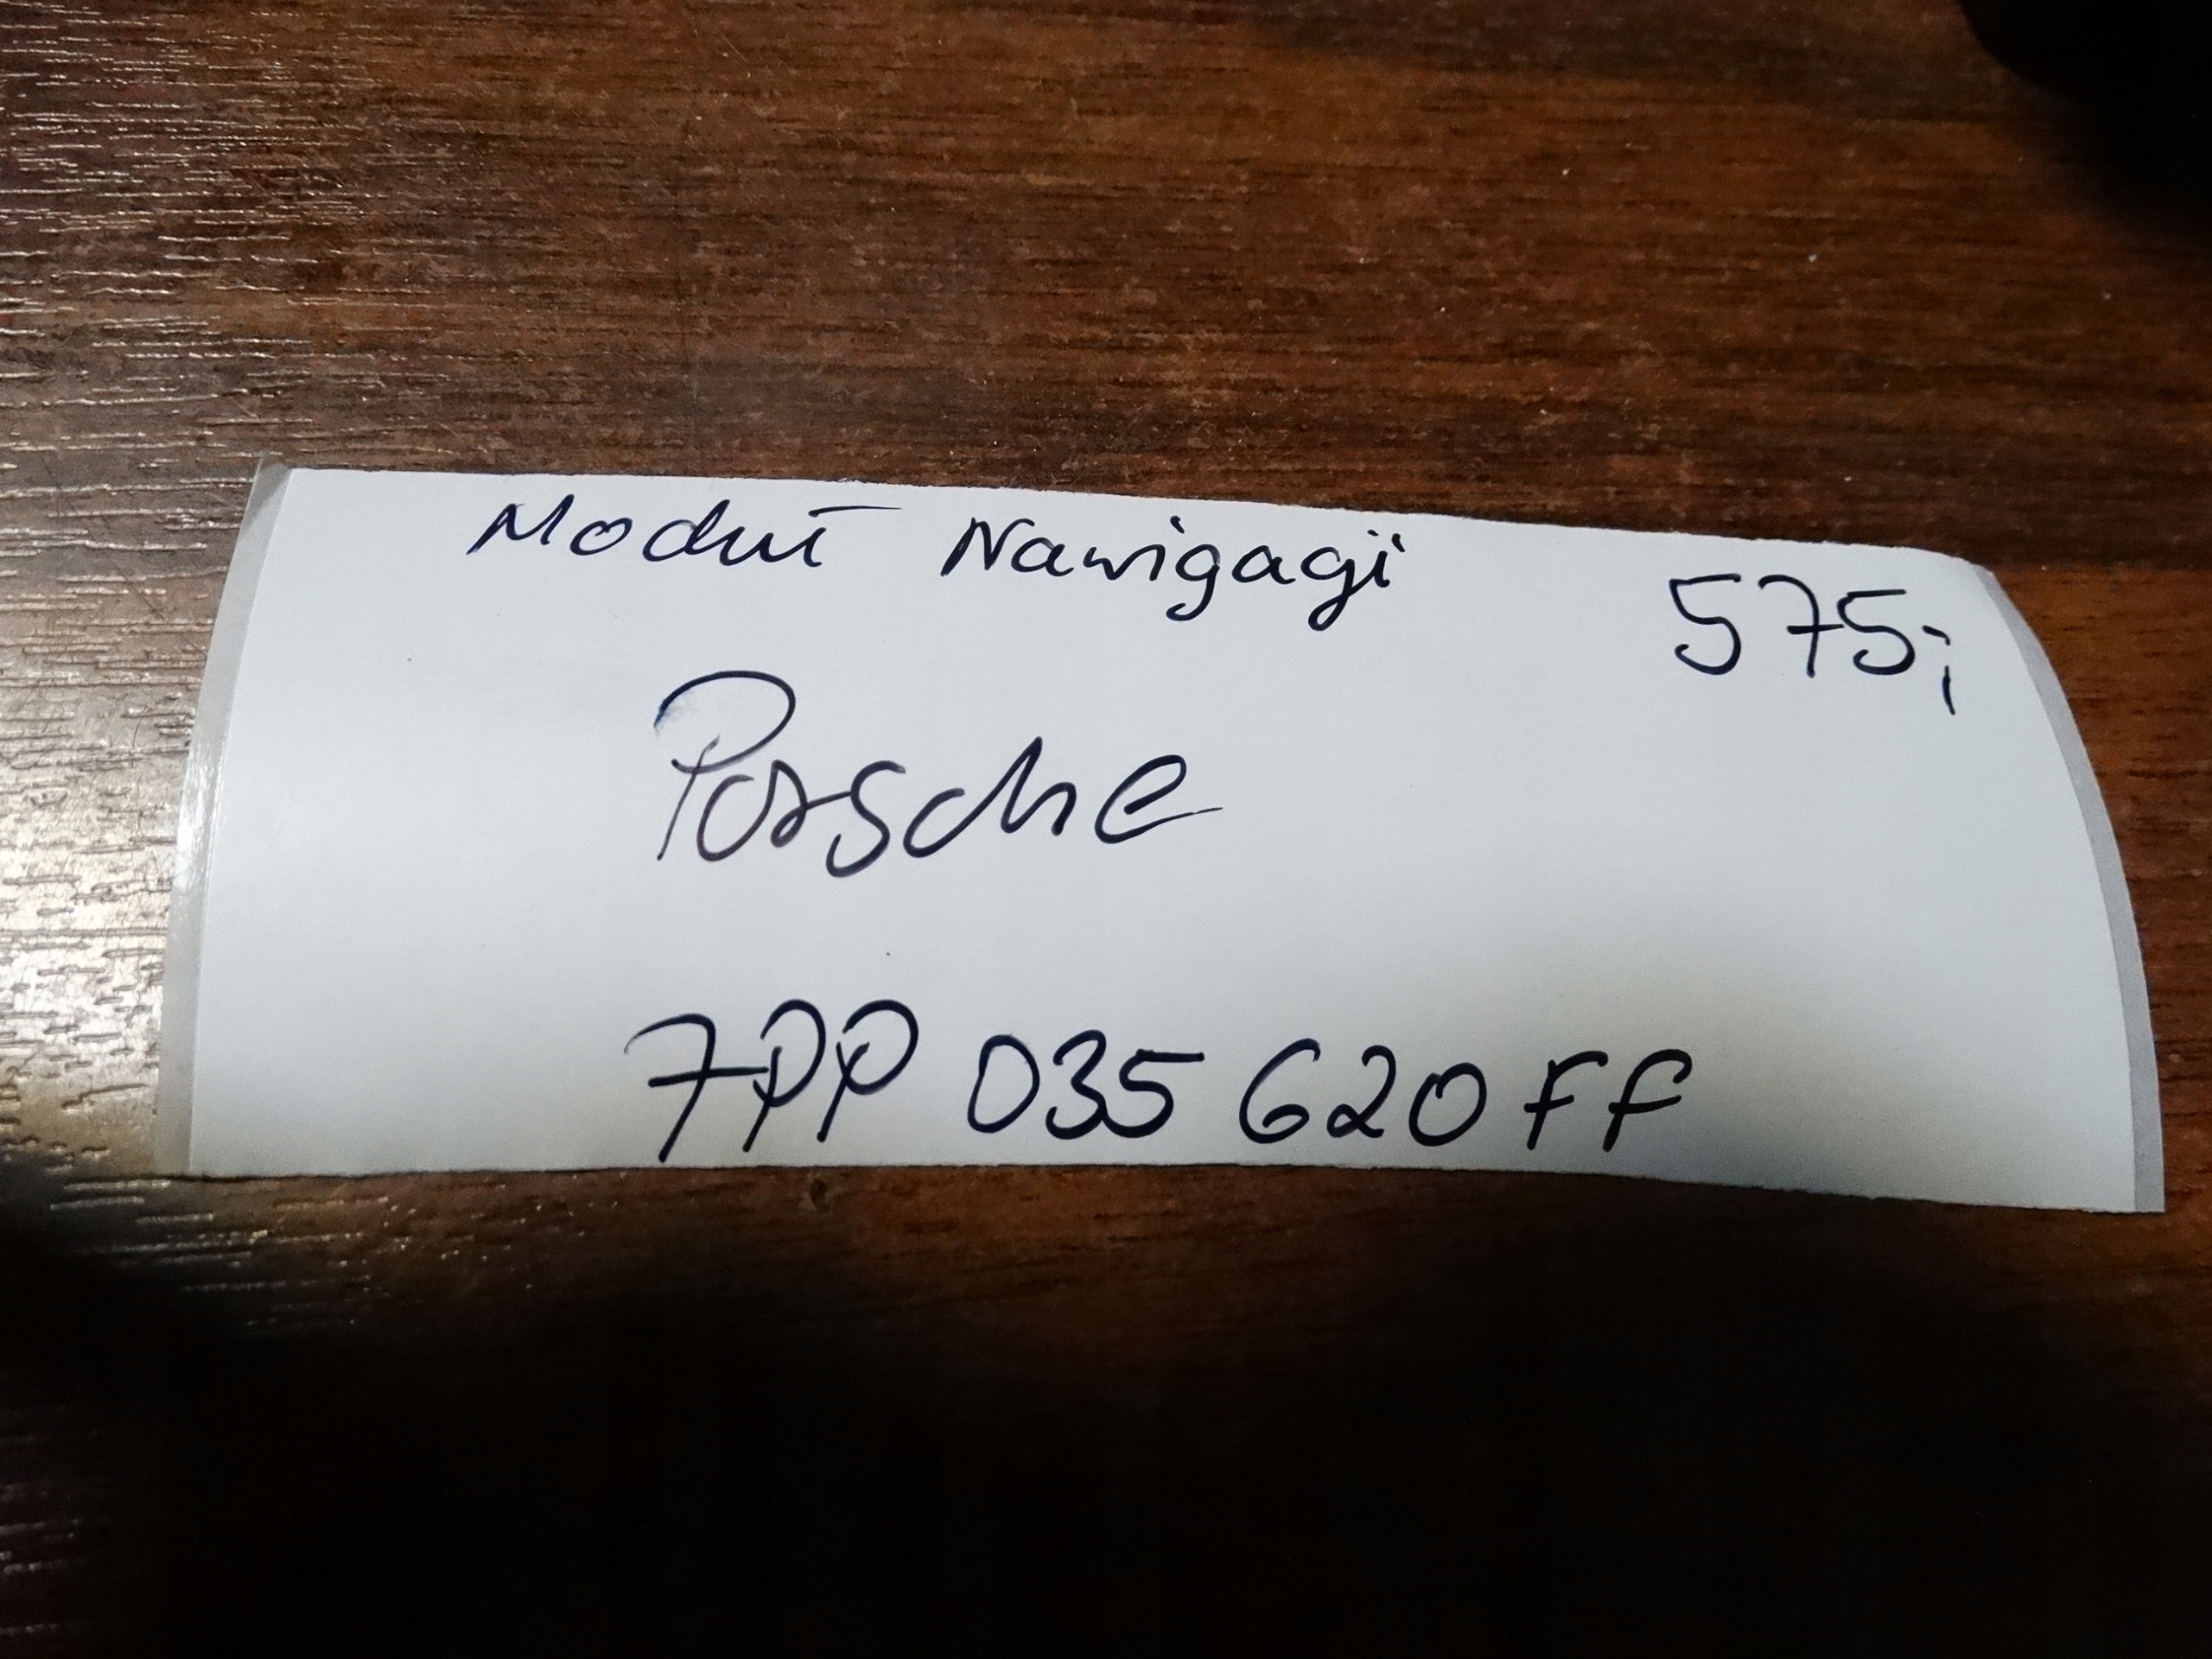 Moduł Nawigacji
575,-
Porsche
7PP 035 620 FF